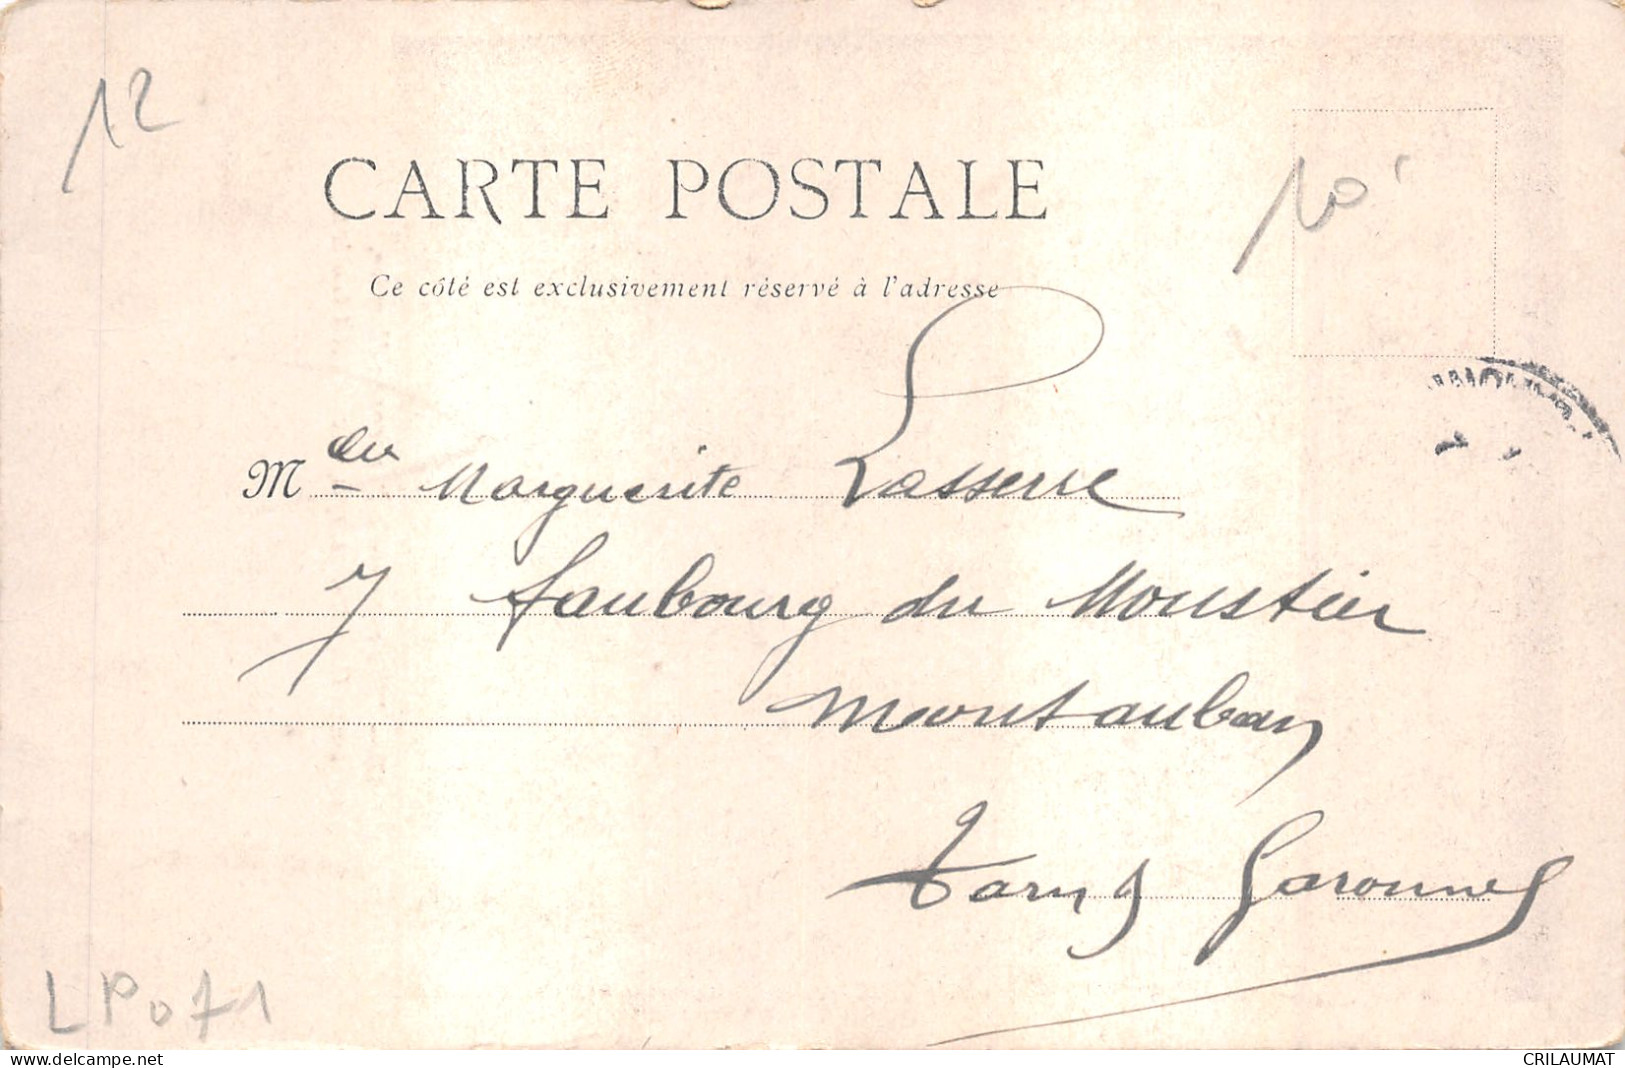 12
CARTE POSTALE
10
Ce côté est exclusivement réservé à l'adresse
Mlle Marguerite Lasserre
7 faubourg du Moustier
Montauban
Tarn & Garonne
LP071
www.delcampe.net
CRILAUMAT